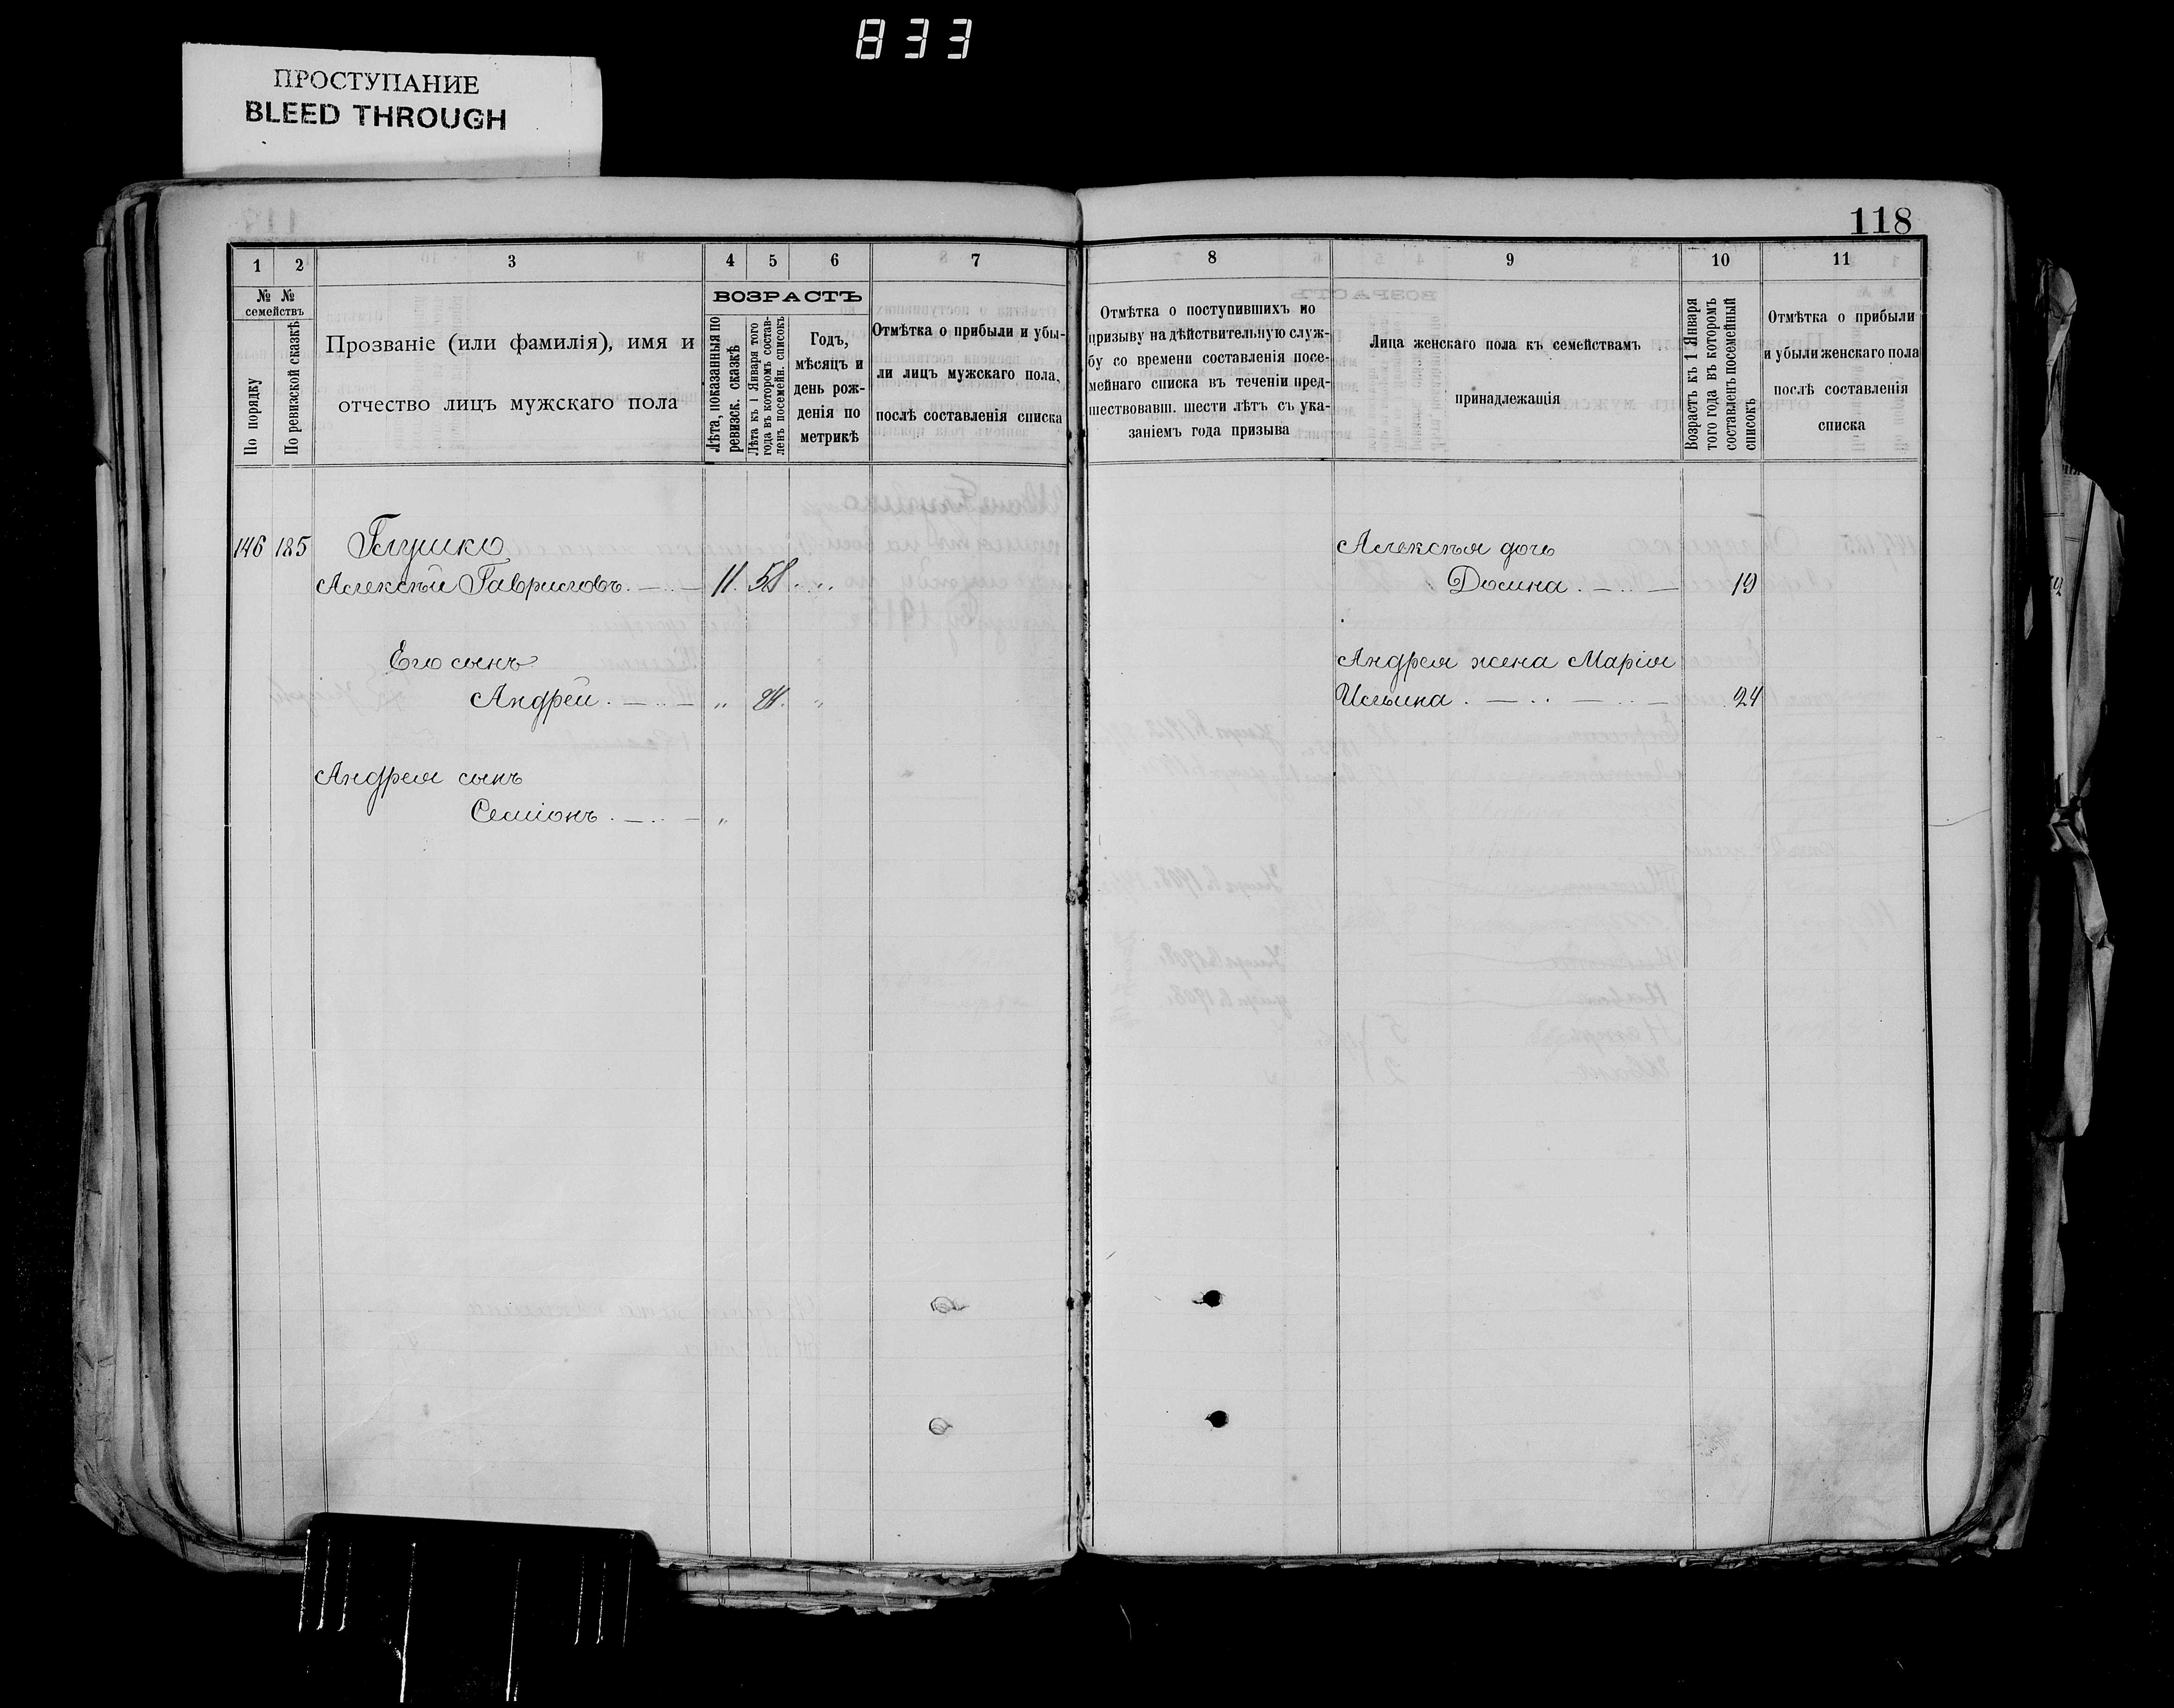 833
ПРОСТУПАНИЕ
BLEED THROUGH
118
1 2 3 4 5 6 7
№ № семействъ
По порядку
По ревизской сказкѣ
Прозваніе (или фамилія), имя и
отчество лицъ мужскаго пола
ВОЗРАСТЪ
Лѣта, показанныя по
ревизск. сказкѣ
Лѣта къ 1 Января того
года въ которомъ состав-
ленъ посемейн. списокъ
Годъ,
мѣсяцъ и
день рож-
денія по
метрикѣ
Отмѣтка о прибыли и убы-
ли лицъ мужскаго пола,
послѣ составленія списка
146 185 Глушко
Алексѣй Гавриловъ. 11. 58.
Его сынъ
Андрей. „ „
Андрея сынъ
Семіонъ. „
8 9 10 11
Отмѣтка о поступившихъ по
призыву на дѣйствительную служ-
бу со времени составленія посе-
мейнаго списка въ теченіи пред-
шествовавш. шести лѣтъ съ ука-
заніемъ года призыва
Лица женскаго пола къ семействамъ
принадлежащія
Возрастъ къ 1 Января
того года въ которомъ
составленъ посемейный
списокъ
Отмѣтка о прибыли
и убыли женскаго пола
послѣ составленія
списка
Алексѣя дочь
Домна. 19
Андрея жена Марія
Ильина. 24